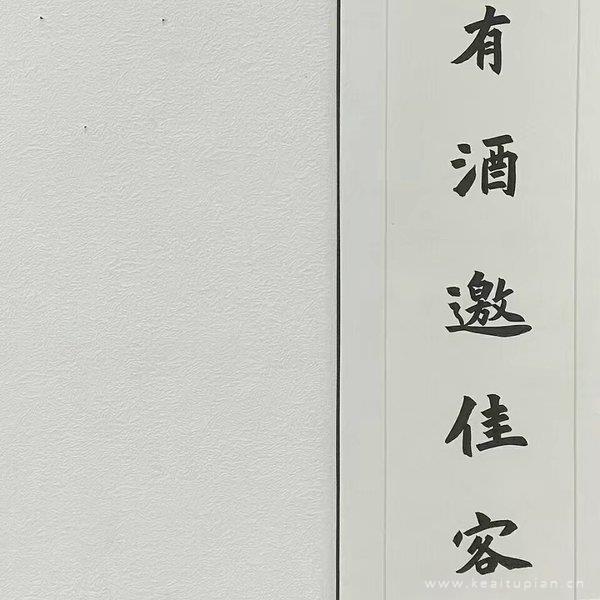 有酒邀佳客
www.keaitupian.cn